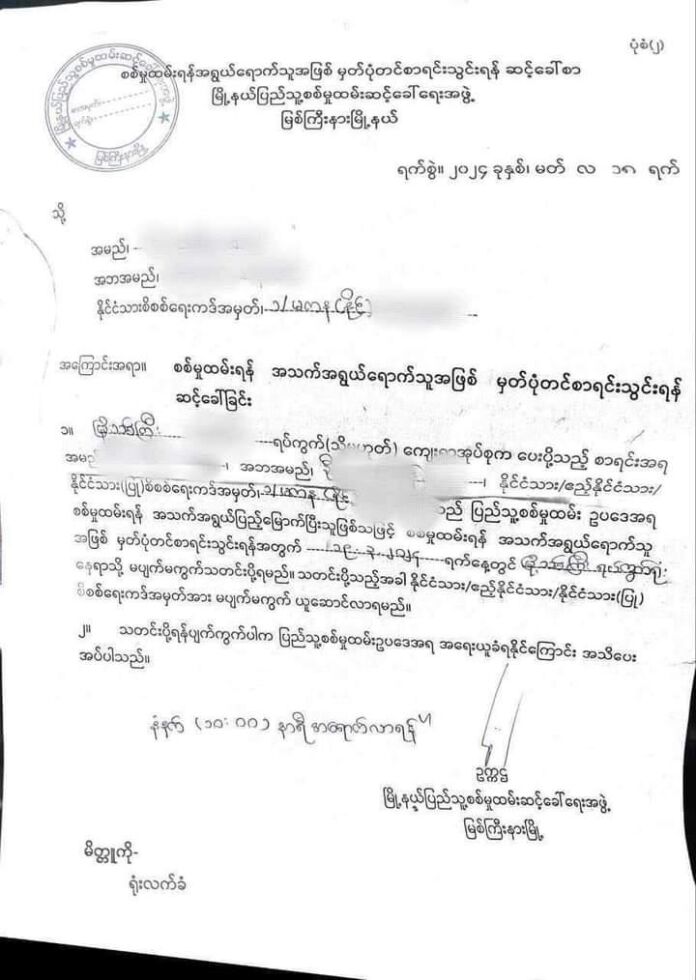 ပုံစံ(၂)
စစ်မှုထမ်းရန်အရွယ်ရောက်သူအဖြစ် မှတ်ပုံတင်စာရင်းသွင်းရန် ဆင့်ခေါ်စာ
မြို့နယ်ပြည်သူ့စစ်မှုထမ်းဆင့်ခေါ်ရေးအဖွဲ့
မြစ်ကြီးနားမြို့နယ်
ရက်စွဲ။ ၂၀၂၄ ခုနှစ်၊ မတ် လ ၁၈ ရက်
သို့
အမည်၊
အဘအမည်၊
နိုင်ငံသားစိစစ်ရေးကဒ်အမှတ်၊ ၁/မကန(နိုင်)
အကြောင်းအရာ။ စစ်မှုထမ်းရန် အသက်အရွယ်ရောက်သူအဖြစ် မှတ်ပုံတင်စာရင်းသွင်းရန်
ဆင့်ခေါ်ခြင်း
၁။ ရပ်ကွက်(သို့မဟုတ်) ကျေးရွာအုပ်စုက ပေးပို့သည့် စာရင်းအရ
အမည် ၊ အဘအမည်၊ ၊ နိုင်ငံသား/ဧည့်နိုင်ငံသား/
နိုင်ငံသား(ပြု)စိစစ်ရေးကဒ်အမှတ်၊ ၁/မကန(နိုင်) သည် ပြည်သူ့စစ်မှုထမ်း ဥပဒေအရ
စစ်မှုထမ်းရန် အသက်အရွယ်ပြည့်မြောက်ပြီးသူဖြစ်သဖြင့် စစ်မှုထမ်းရန် အသက်အရွယ်ရောက်သူ
အဖြစ် မှတ်ပုံတင်စာရင်းသွင်းရန်အတွက် ၁၉-၃-၂၀၂၄ ရက်နေ့တွင်
နေရာသို့ မပျက်မကွက်သတင်းပို့ရမည်။ သတင်းပို့သည့်အခါ နိုင်ငံသား/ဧည့်နိုင်ငံသား/နိုင်ငံသား(ပြု)
စိစစ်ရေးကဒ်အမှတ်အား မပျက်မကွက် ယူဆောင်လာရမည်။
၂။ သတင်းပို့ရန်ပျက်ကွက်ပါက ပြည်သူ့စစ်မှုထမ်းဥပဒေအရ အရေးယူခံရနိုင်ကြောင်း အသိပေး
အပ်ပါသည်။
နံနက် (၁၀:၀၀) နာရီ အရောက်လာရန်
ဥက္ကဋ္ဌ
မြို့နယ်ပြည်သူ့စစ်မှုထမ်းဆင့်ခေါ်ရေးအဖွဲ့
မြစ်ကြီးနားမြို့
မိတ္တူကို-
ရုံးလက်ခံ